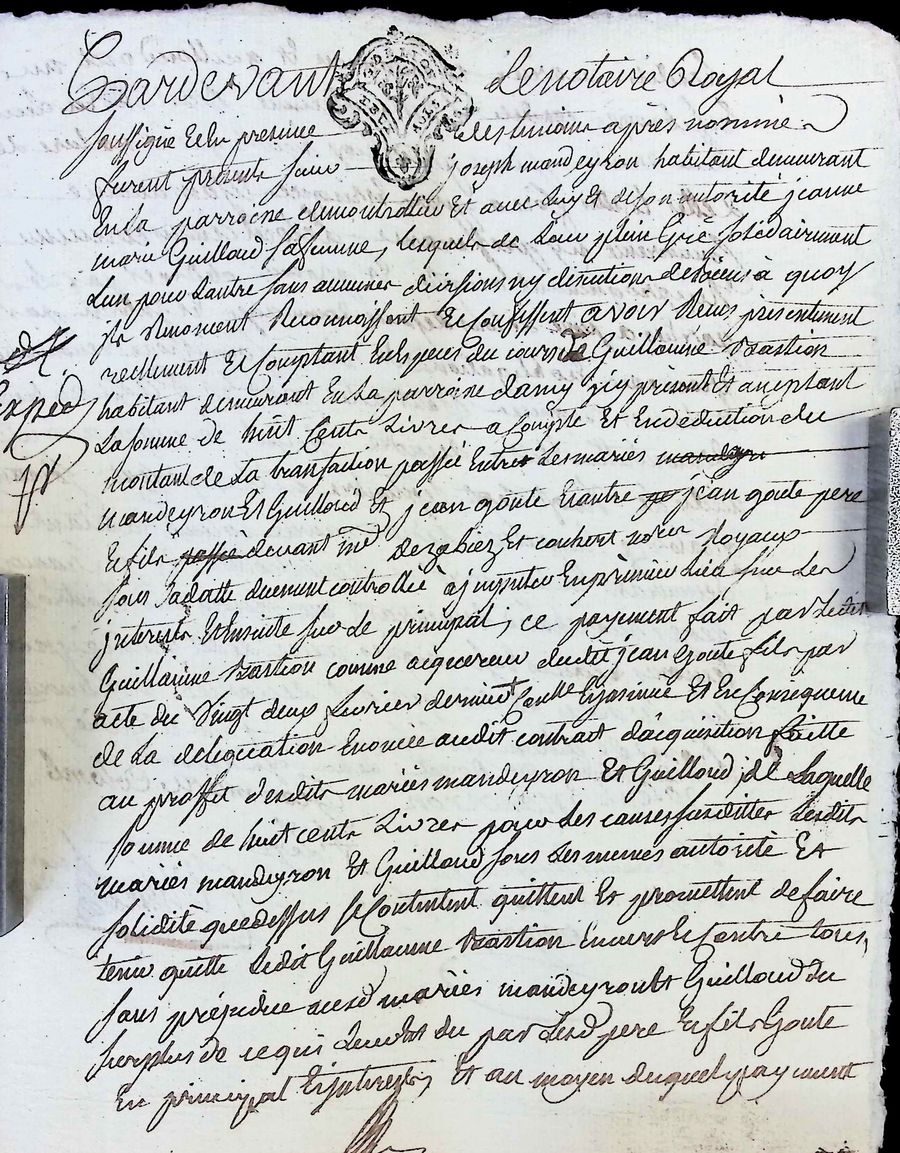 Pardevant Le notaire Royal
soussigné Et En presence des temoins après nommé
furent présents sieur joseph mandeyron habitant demeurant
En La parroisse de montrottier Et avec Luy Et de son autorité jeanne
marie Guilloud sa femme, Lesquels de Leur plein Gré solidairement
L'un pour L'autre sans aucunes divisions ny
ils Renoncent Reconnoissent Et Confessent avoir Reçus présentement
reellement Et Comptant En Especes du cours de Guillaume Bastion
habitant demeurant En La parroisse d'amy icy présent Et acceptant
La somme de huit Cents Livres a Compte Et En deduction du
montant de La transaction passée Entre Les mariés mandeyron
mandeyron Et Guilloud Et jean goute Et autre jean goute pere
Et fils passée devant me Et nores Royaux
sous sa datte duement controllée à imputer En premier Lieu sur Les
interests Et Ensuite sur Le principal, ce payement fait par Ledit
Guillaume Bastion comme acquereur dudit jean Goute fils par
acte du Vingt deux fevrier dernier Conlle Et Insinué Et En Consequence
de La délégation Enoncée audit contrat d'acquisition faitte
au proffit desdits mariés mandeyron Et Guilloud, de Laquelle
somme de huit cents Livres pour Les causes susdittes Lesdits
mariés mandeyron Et Guilloud sous Les memes autorité Et
solidité que dessus se Contentent quittent Et promettent de faire
tenir quitte Ledit Guillaume Bastion Envers Et Contre tous,
sans préjudice auxd mariés mandeyron Et Guilloud du
surplus de ce qui Leur Est du par Lesd pere Et fils Goute
En principal Et Interests, Et au moyen duquel payement
Exped